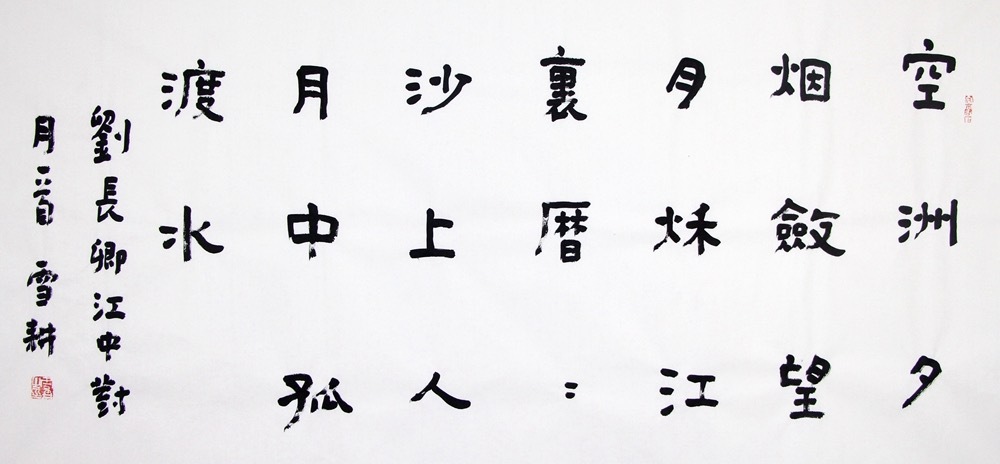 空洲夕
烟斂望
月秌江
裏暦：
沙上人
月中孤
渡水
劉長卿江中對
月一首 雪耕